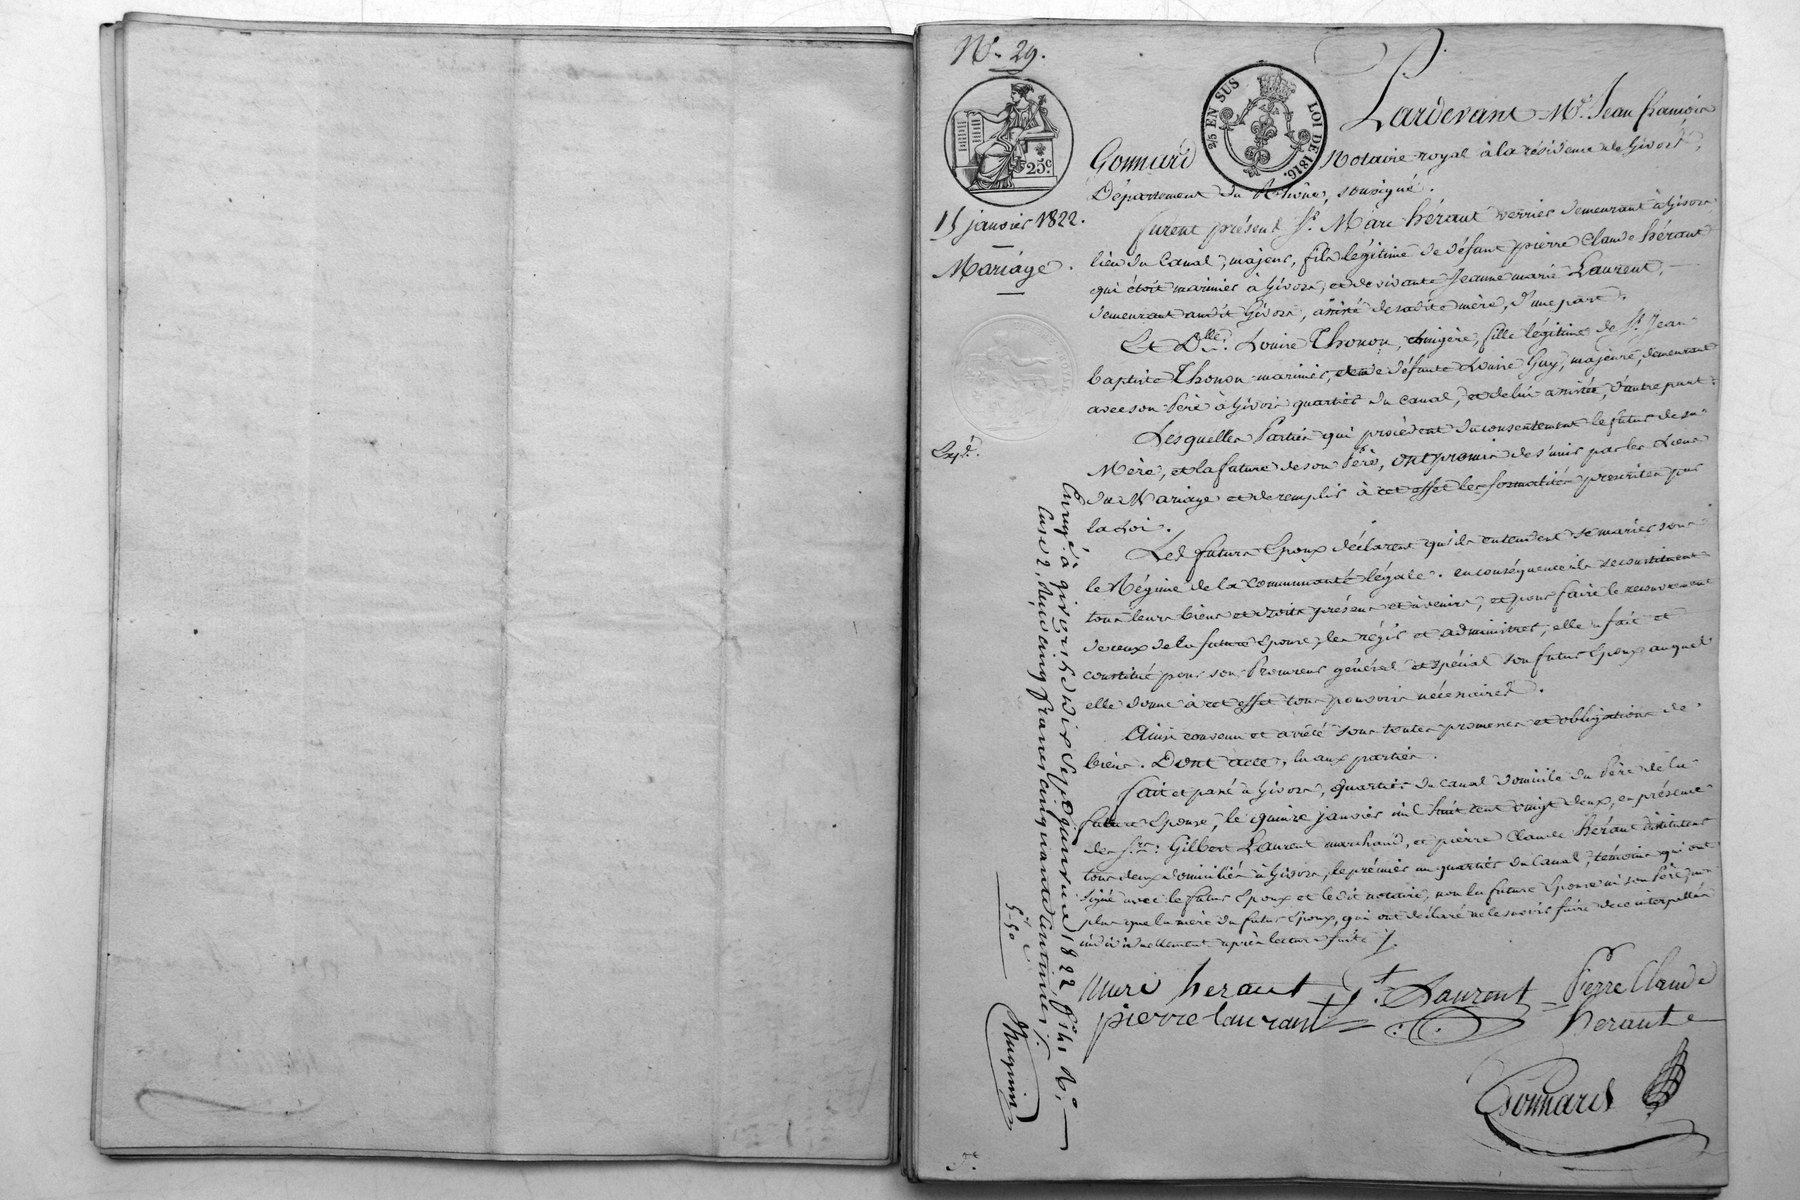 N° 29.
2/5 EN SUS
LOI DE 1816.
25c
15 janvier 1822.
Mariage.
Exp.é
Pardevant Me. Jean françois
Gonnard Notaire royal à la résidence de Givors,
Département du Rhône, soussigné.
furent présens Sr. Marc héraut verrier demeurant à Givors
lieu du Canal, majeur, fils légitime de défunt pierre Claude héraut
qui étoit marinier à Givors, et de vivante Jeanne marie Laurent,
demeurant audit Givors, assisté de sadite mère, d'une part.
Et Dlle. Louise Thonon, fille légitime de Sr. Jean
baptiste Thonon marinier, et de défunte Louise Guy, majeure, demeurant
avec son Père à Givors quartier du Canal, et de lui assistée, d'autre part.
Lesquelles Parties qui procèdent du consentement le futur de sa
Mère, et la future de son Père, ont promis de s'unir par les Liens
du Mariage et de remplir à cet effet les formalités prescrites par
la Loi.
Les futurs Epoux déclarent qu'ils entendent se marier sous
le Régime de la communauté légale. en conséquence ils se constituent
tous leurs biens et droits présens et àvenir, et pour faire le recouvrement
de ceux de la future Epouse, les régir et administrer, elle a fait et
constitué pour son Procureur général et spécial son futur Epoux auquel
elle donne à cet effet tous pouvoirs nécessaires.
Ainsi convenu et arrêté sous toutes promesses et obligations de
biens. Dont acte, lu aux parties.
fait et passé à Givors, quartier du Canal domicile du Père de la
future Epouse, le quinze janvier mil huit cent vingt deux, en présence
des Srs. Gilbert Laurent marchand, et pierre Claude héraut
tous deux domiciliés à Givors, le premier au quartier du Canal, témoins qui ont
signé avec le futur Epoux et ledit notaire, non la future Epouse ni son Père, non
plus que la mère du futur Epoux, qui ont déclaré ne le savoir faire de ce interpellés
individuellement après lecture faite /.
marc heraut Gt. Laurent Pierre Claude
pierre laurant heraut
Gonnard
Enregé. à givors le dix Sept janvier 1822, fo. 141 Ro.
Case 2, Reçu cinq francs cinquante centimes /.
5f 50